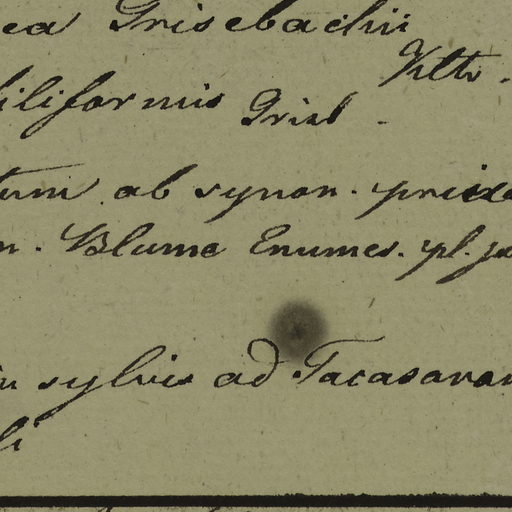 ea Grisebachii
Vltv.
filiformis Gris.
tum ab synon. priexa
n. Blume Enumes. pl. ja
in sylvis ad Tacasavan
li